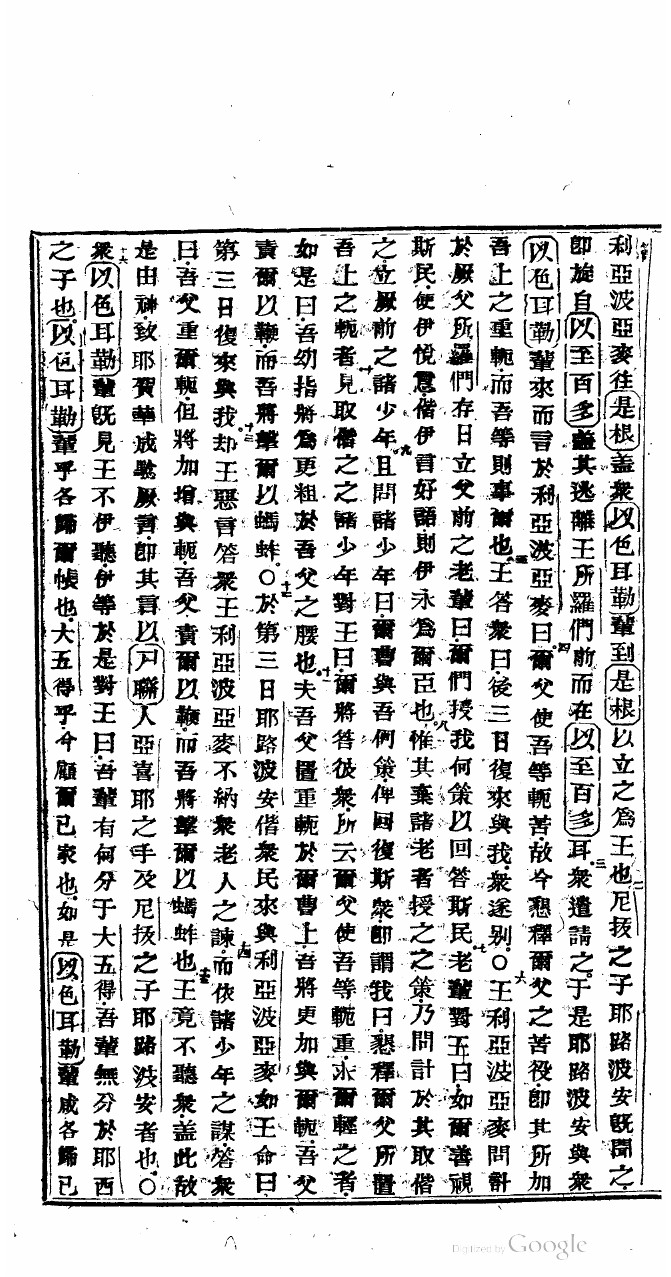 利亞波亞麥往是根盖衆以色耳勒輩到是根以立之為王也尼拔之子耶路波安旣聞之
即旋自以至百多盖其逃離王所羅們前而在以至百多耳衆遣請之于是耶路波安與衆
以色耳勒輩來而言於利亞波亞麥曰爾父使吾等軛苦故今懇釋爾父之苦役即其所加
吾上之重軛而吾等則事爾也王答衆曰後三日復來與我衆遂别○王利亞波亞麥問計
於厥父所羅們存日立父前之老輩曰爾們授我何策以回答斯民老輩對王曰如爾善視
斯民使伊悅意偕伊言好語則伊永為爾臣也惟其棄諸老者授之之策乃問計於其取偕
之立厥前之諸少年且問諸少年曰爾曹與吾何策俾回復斯衆即謂我曰懇釋爾父所置
吾上之軛者見取偕之之諸少年對王曰爾將答彼衆所云爾父使吾等軛重求爾輕之者
如是曰吾幼指將為更粗於吾父之腰也夫吾父置重軛於爾曹上吾將更加與爾軛吾父
責爾以鞭而吾將擊爾以蠇蚱○於第三日耶路波安偕衆民來與利亞波亞麥如王命曰
第三日復來與我却王惡言答衆王利亞波亞麥不納衆老人之諫而依諸少年之謀答衆
曰吾父重爾軛但將加增與軛吾父責爾以鞭而吾將擊爾以蠇蚱也王竟不聽衆盖此故
是由神致耶賀華成驗厥言即其言以戶聯人亞喜耶之手及尼拔之子耶路波安者也○
衆以色耳勒輩旣見王不伊聽伊等於是對王曰吾輩有何分于大五得吾輩無分於耶西
之子也以色耳勒輩乎各歸爾帳也大五得乎今顧爾已家也如是以色耳勒輩咸各歸已
Digitized by Google